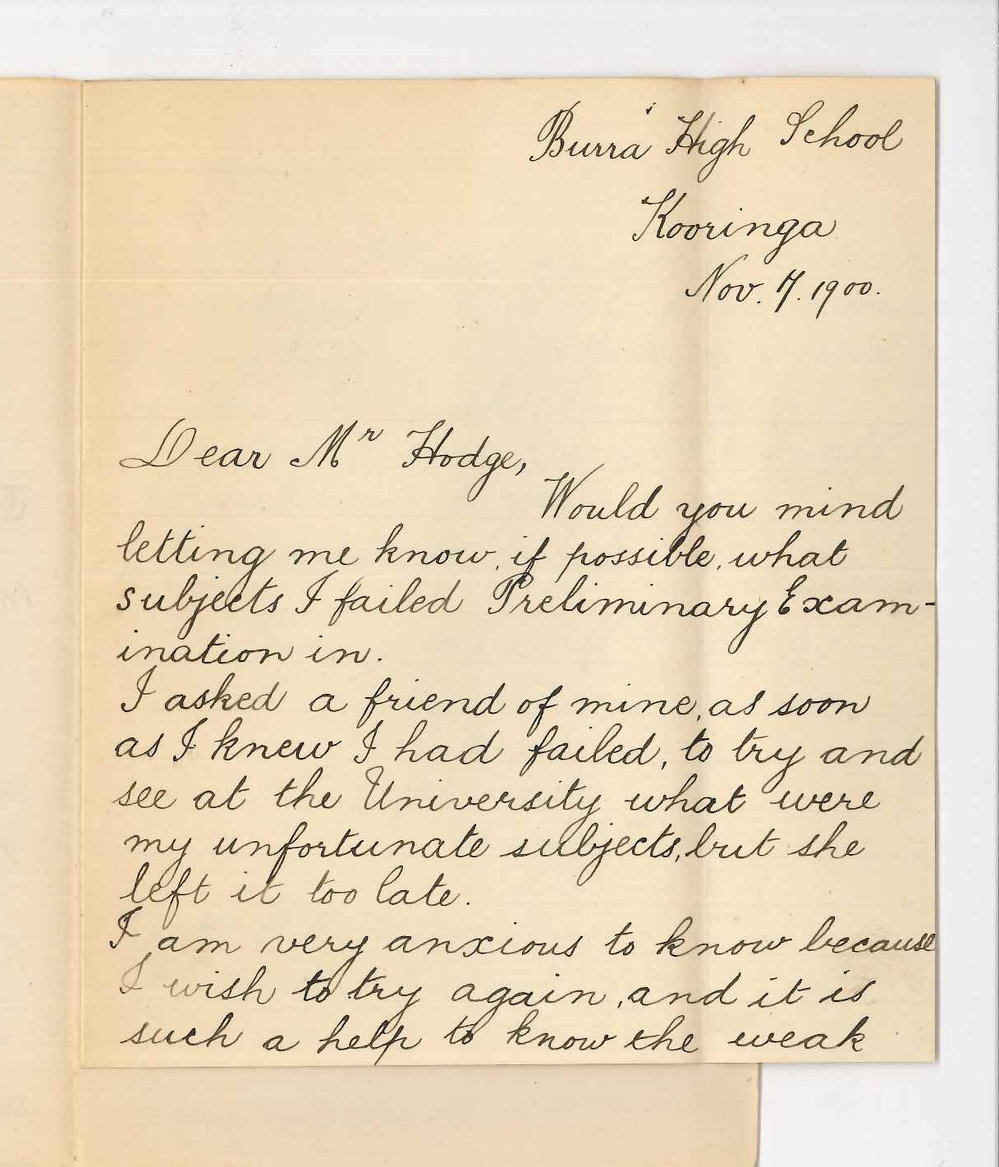 Burra High School
Kooringa
Nov. 7. 1900.
Dear Mr Hodge,
Would you mind
letting me know, if possible, what
subjects I failed Preliminary Exam-
ination in.
I asked a friend of mine, as soon
as I knew I had failed, to try and
see at the University what were
my unfortunate subjects, but she
left it too late.
I am very anxious to know because
I wish to try again, and it is
such a help to know the weak